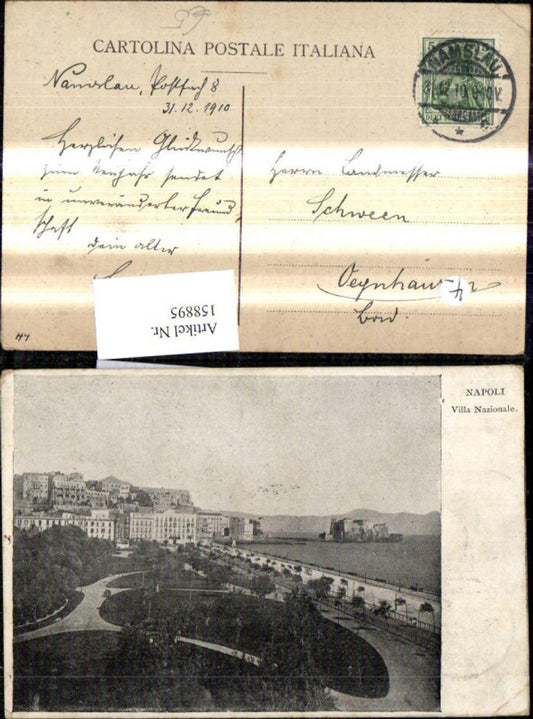 CARTOLINA POSTALE ITALIANA
Namslau, Postfach 8
31.12.1910
Herzlichen Glückwunsch
zum Neujahr sendet
in unveränderter Freund
schaft
dein alter
NAMSLAU
5
Herrn Landmesser
Schween
Oeynhausen
Bad.
4
Artikel Nr.
158895
NAPOLI
Villa Nazionale.